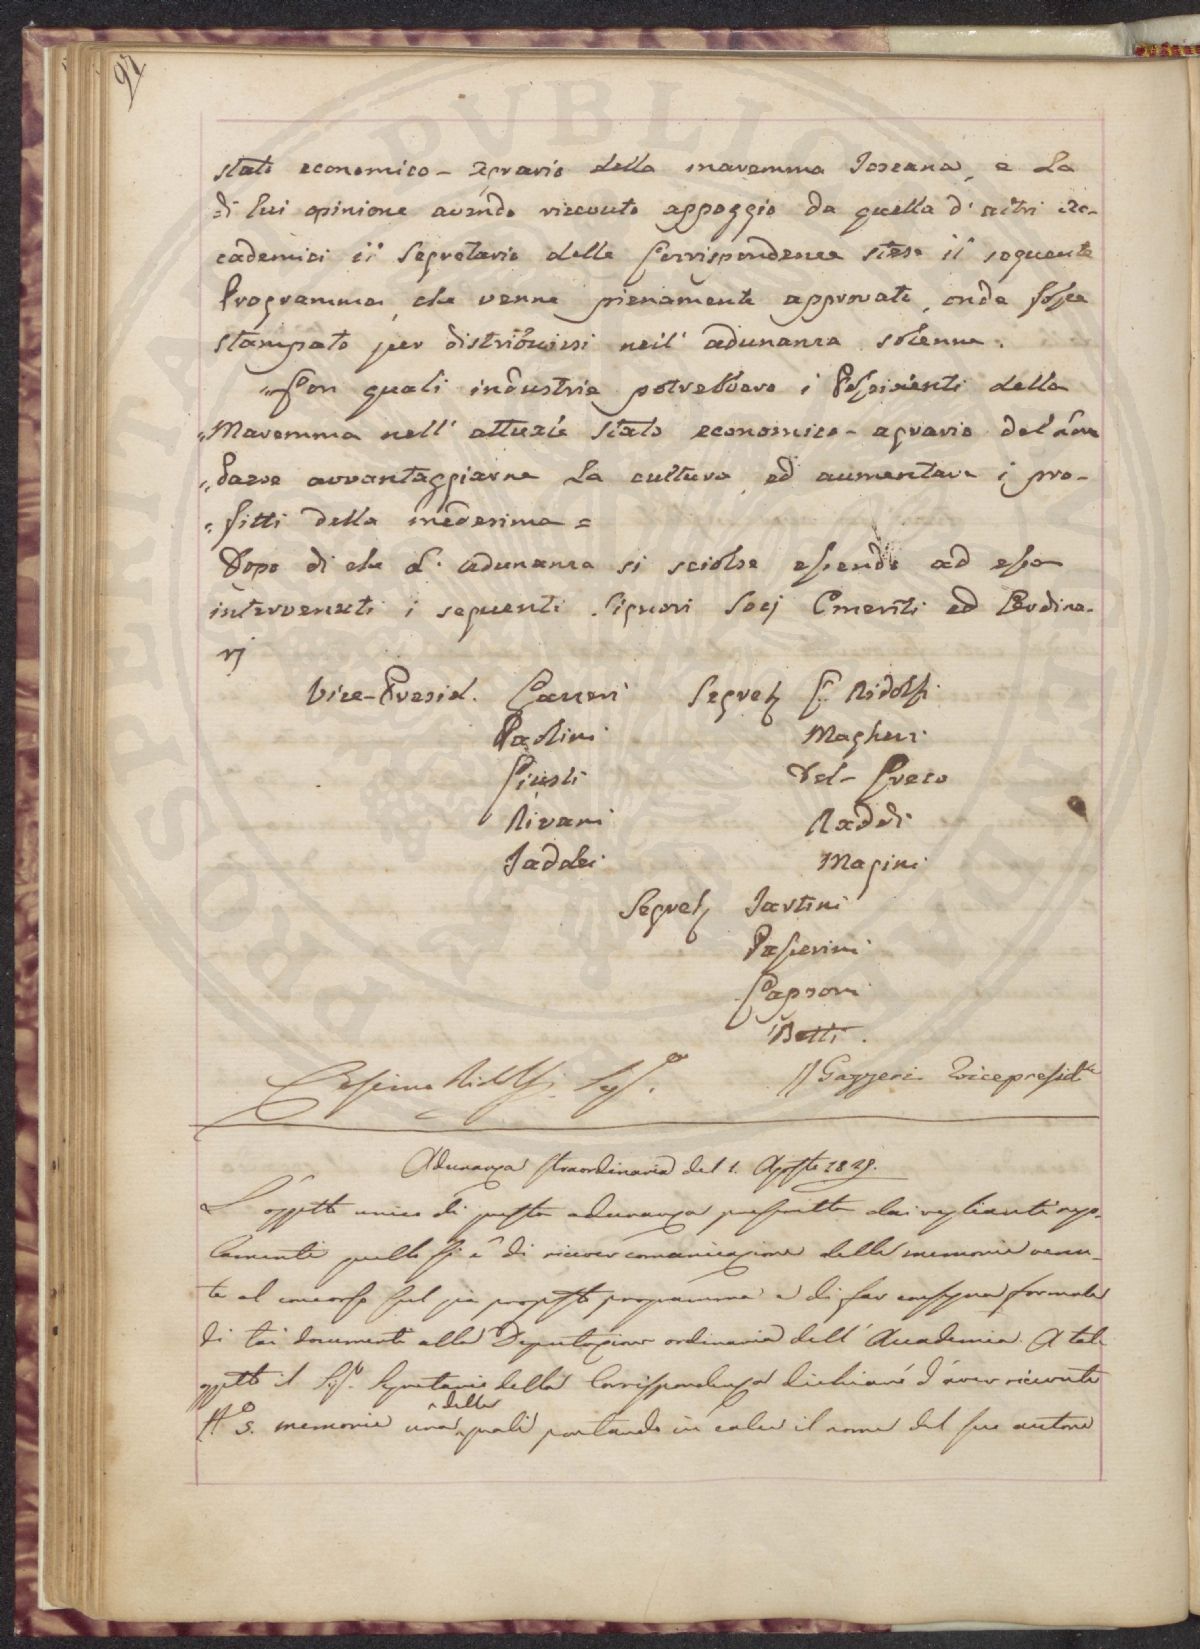 92
stato economico-agrario della maremma Toscana, e la
di lui opinione avendo ricevuto appoggio da quella d'altri Ac-
cademici il Segretario delle Corrispondenze stese il seguente
Programma, che venne pienamente approvato, onde fosse
stampato per distribuirsi nell' adunanza solenne.
"Con quali industrie potrebbero i Possidenti della
"Maremma nell' attuale stato economico-agrario del loro
"Paese avvantaggiarne la cultura, ed aumentare i pro-
"fitti della medesima =
Dopo di che l' adunanza si sciolse essendo ad essa
intervenuti i seguenti Signori Socj Emeriti ed Ordina-
rj
Vice-Presid. Gazzeri Segret. C. Ridolfi
Paolini Magheri
Giusti Del-Greco
Rivani Raddi
Taddei Magini
Segret. Tartini
Passerini
Capponi
Betti.
Cosimo Ridolfi Seg.o
Gazzeri Vicepresid.te
Adunanza straordinaria del 1. Agosto 1828.
L' oggetto unico di questa adunanza prescritta dai veglianti rego-
lamenti quello si è di ricever comunicazione delle memorie venu-
te al concorso sul già proposto programma e di far consegna formale
di tai documenti alla Deputazione ordinaria dell' Accademia. A tale
oggetto il Sig.r Segretario della Corrispondenza dichiarò d'aver ricevute
N.o 3. memorie una delle quali portando in calce il nome del suo autore